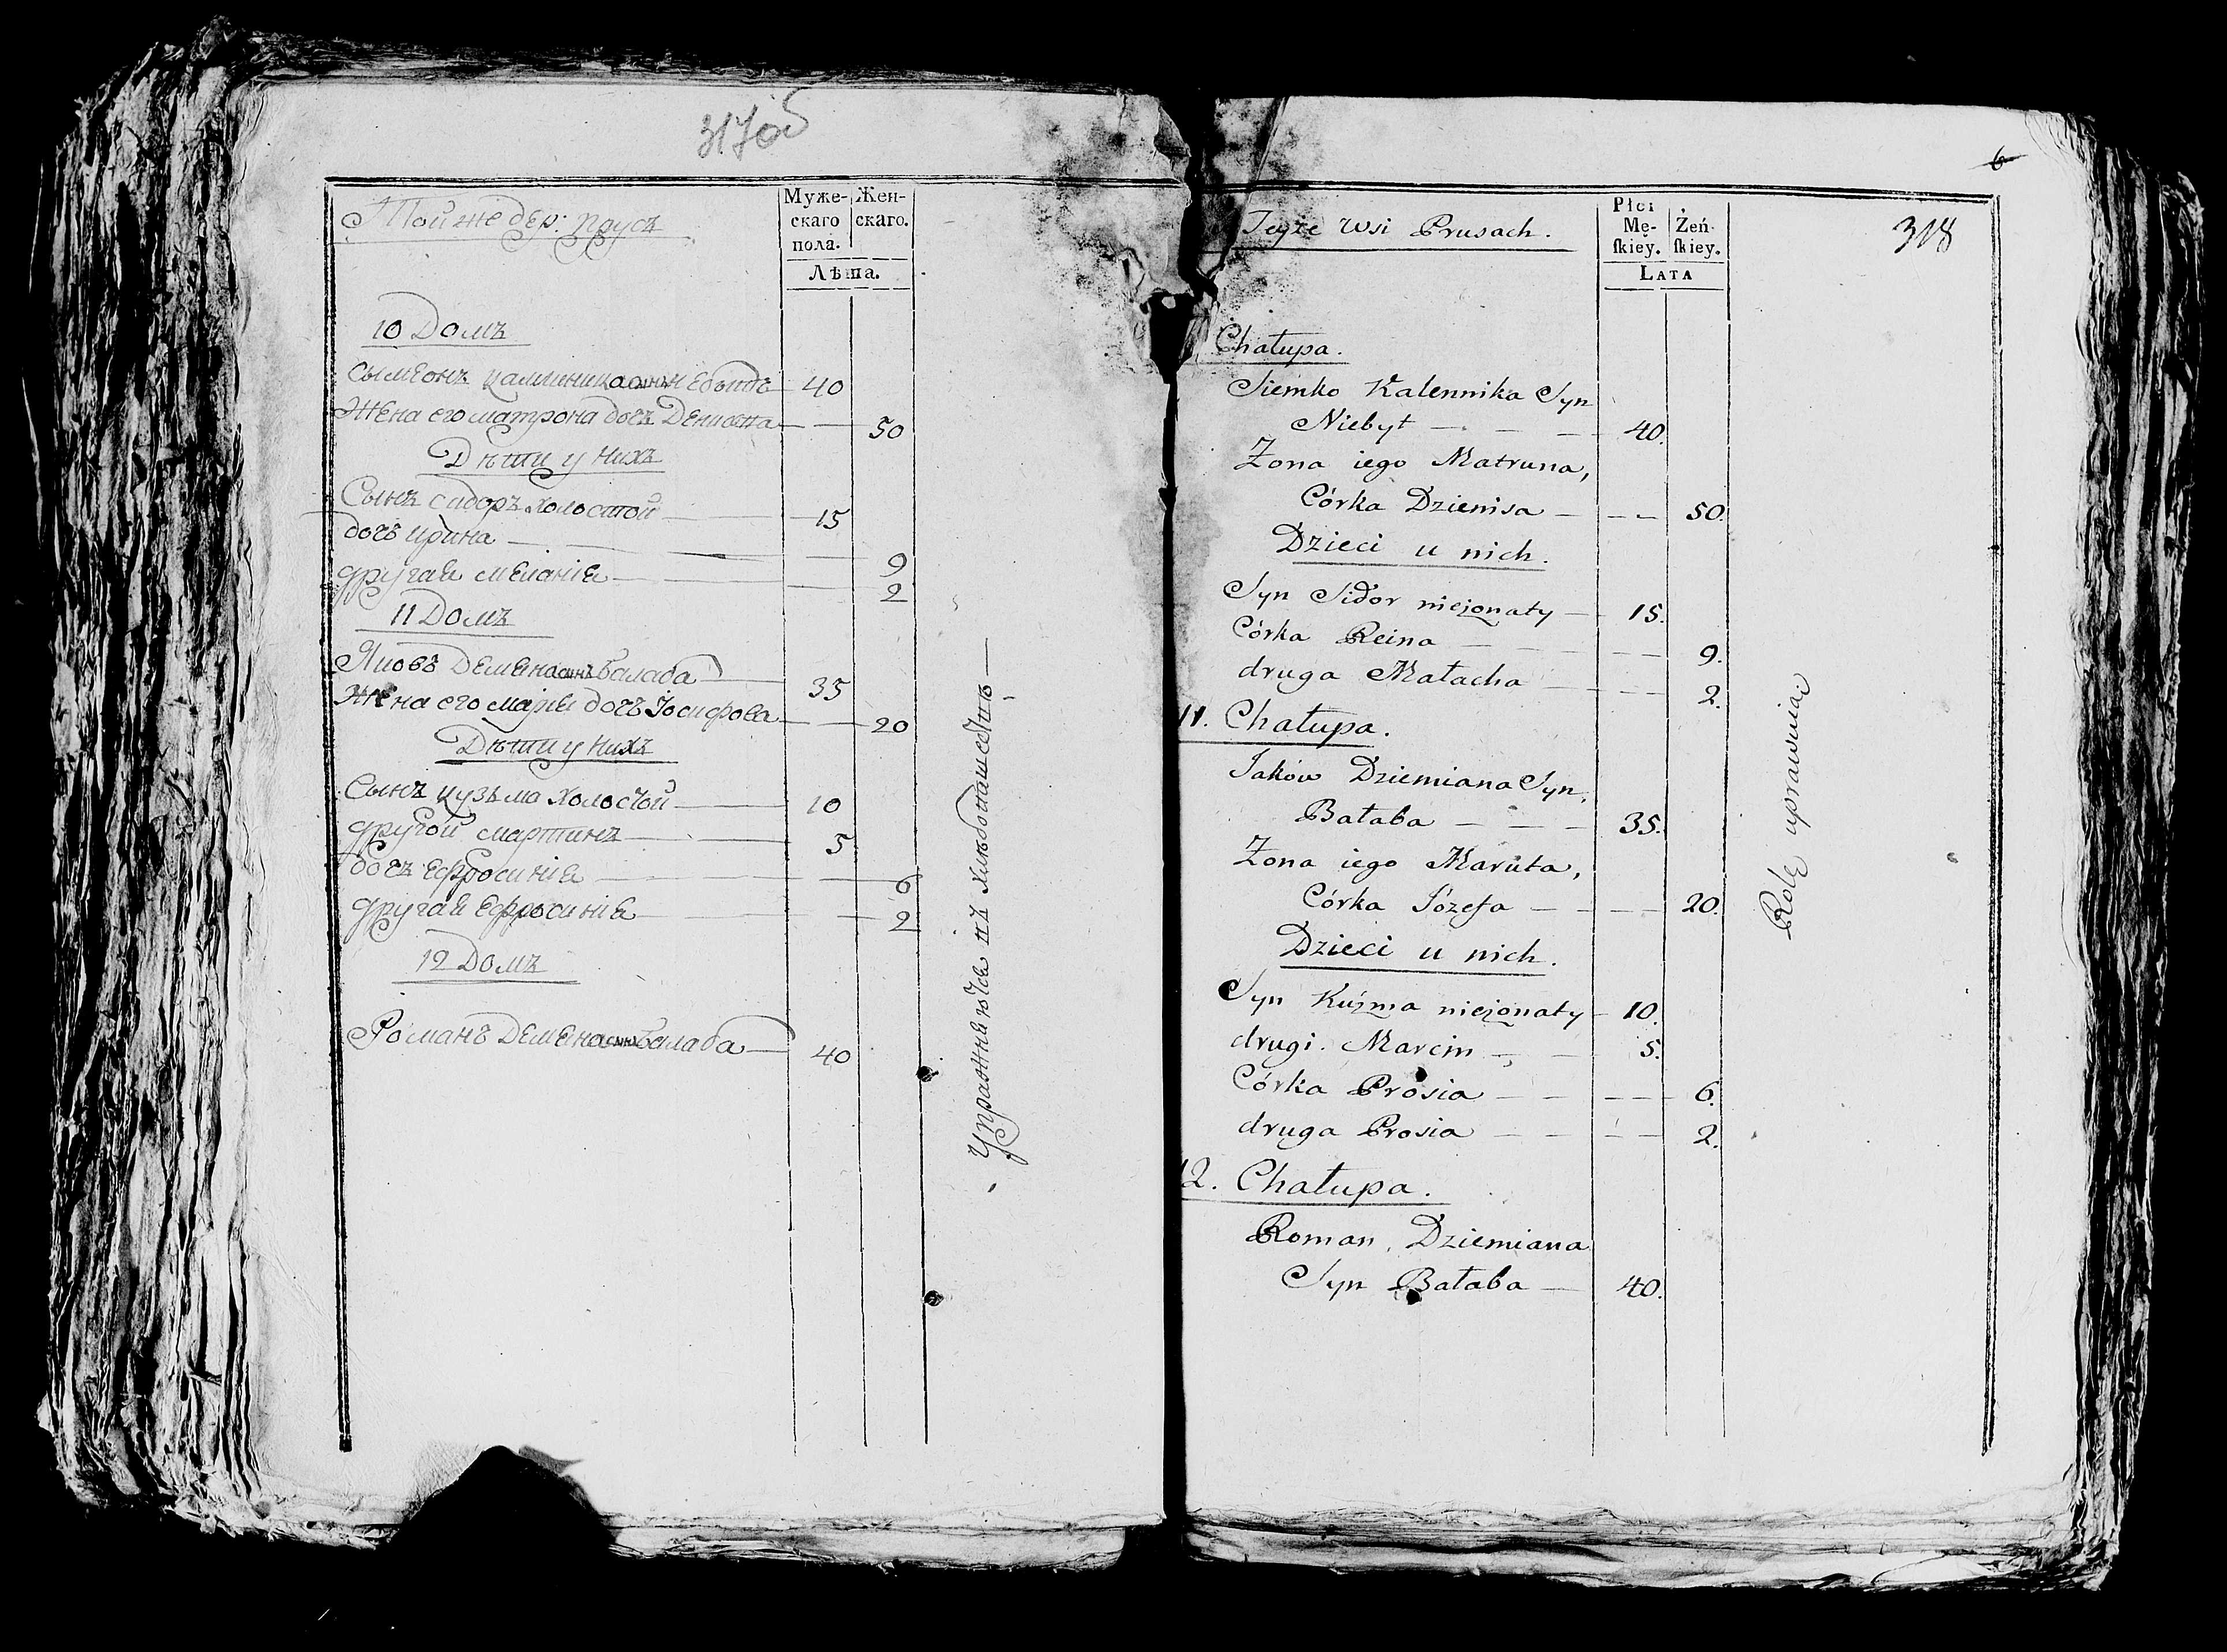 317об
Той же дер: Прусъ
Муже-
скаго
пола.
Жен-
скаго.
Лѣта.
10 Домъ
Сымеонъ сынъ 40
Жена его матрона дочь Дениса 50
Дѣти у нихъ
Сынъ сидоръ холостой 15
дочь ирина 9
другая меланія 2
11 Домъ
Яковъ Демяна сынъ балаба 35
Жена его марія дочь Іосифова 20
Дѣти у нихъ
Сынъ кузьма холостой 10
другой мартинъ 5
дочь ефросинія 6
другая ефросинія 2
12 Домъ
Романъ Демяна сынъ балаба 40
Упражняются въ хлѣбопашествѣ
6
318
Teyże wsi Prusach.
Płci
Mę-
ſkiey.
Żeń-
ſkiey.
Lata
Chałupa.
Siemko Kalennika Syn
Niebyt 40.
Zona iego Matruna,
Córka Dzienisa 50.
Dzieci u nich.
Syn Sidor nieżonaty 15.
Córka Reina 9.
druga Małacha 2.
11. Chałupa.
Jaków Dziemiana Syn,
Bałaba 35.
Zona iego Maruta,
Córka Józefa 20.
Dzieci u nich.
Syn Kuźma nieżonaty 10.
drugi Marcin 5.
Córka Prosia 6.
druga Prosia 2.
12. Chałupa.
Roman, Dziemiana
Syn Bałaba 40.
Rolę uprawuiąc